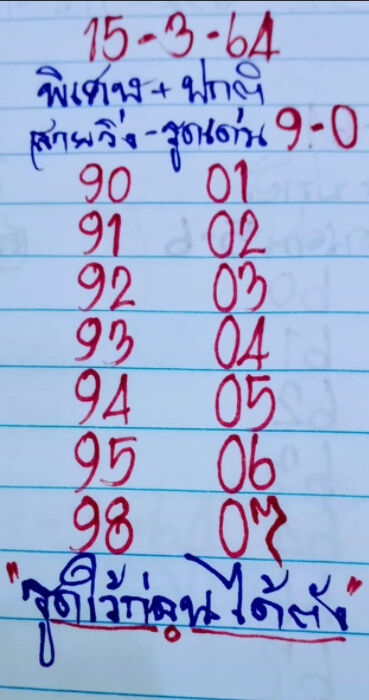 15-3-64
พิเศษ + ปกติ
สายวิ่ง - รูดเด่น 9-0
90 01
91 02
92 03
93 04
94 05
95 06
98 07
"รูดไว้ก่อนได้ตัง"